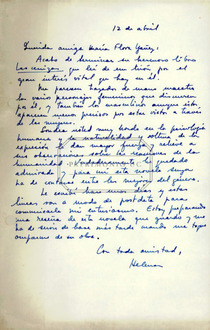 12 de abril
Querida amiga María Flora Yáñez,
Acabo de terminar su hermoso libro
Las cenizas, que leí de un tirón por el
gran interés vital que hay en él.
Me parecen trazados de mano maestra
los varios personajes femeninos que discurren
por él, y también los masculinos aunque
aparecen menos precisos por estar vistos a través
de las mujeres.
Sondea usted muy hondo en la psicología
humana y la naturalidad y altura de la
expresión dan mayor fuerza y relieve a
sus observaciones sobre las reacciones de la
humanidad. He quedado
admirado y para mí esta novela suya
ha de contarse entre las mejores del género.
Le escribí hace unos días y estas
líneas van a modo de postdata para
comunicarle mi entusiasmo. Estoy preparando
una reseña de esta novela que guardo y me
ha de servir de base más tarde cuando me
ocuparme de su obra.
Con toda amistad,
Helman